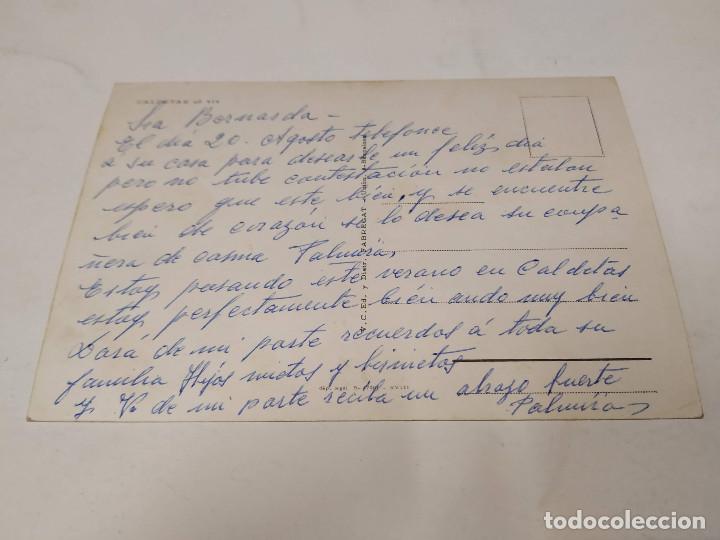 CALDETAS
Sra Bernarda –
El dia 20. Agosto telefonee
a su casa para desearle un felizs dia
pero no tube contestación no estaban
espero que este bien, y se encuentre
bien de corazón se lo desea su compa
ñera de casma Palmira
Estoy pasando este verano en Caldetas
estoy perfectamente bién ando muy bien
Dará de mi parte recuerdos á toda su
familia Hijos nietos y bisnietos
y V. de mi parte reciba un abrazo fuerte
Palmira
A.C. Ed. y Distr. FABREGAT
Dep. legal B.
todocoleccion